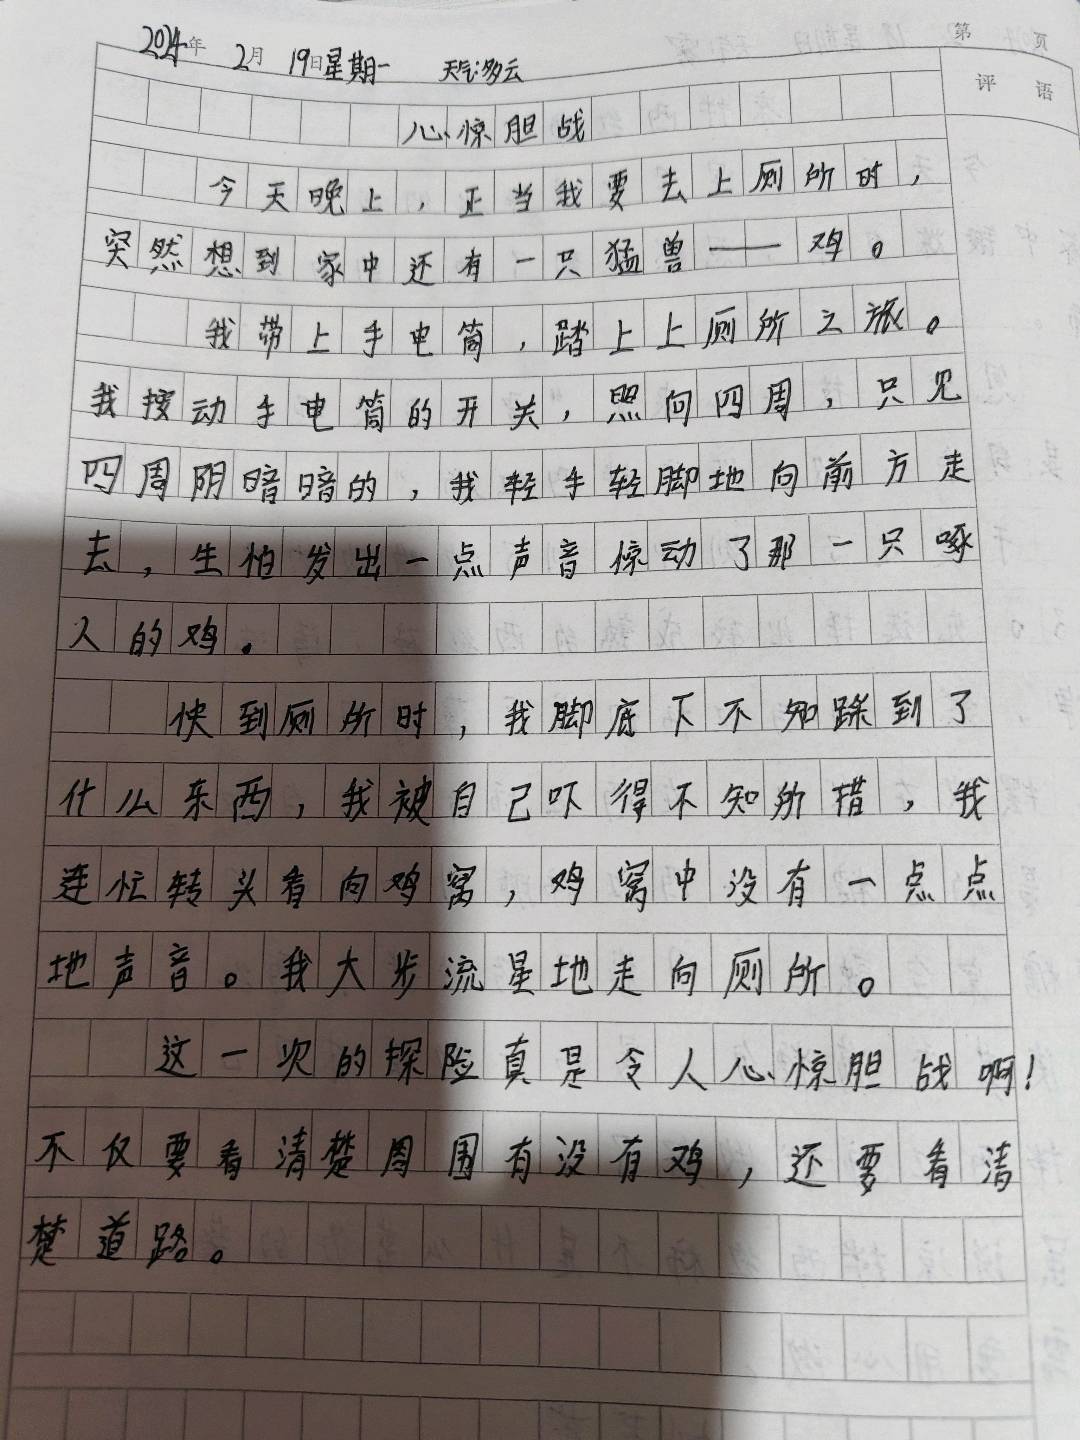 第 页
2024年 2月 19日星期一 天气:多云
评 语
心惊胆战
今天晚上，正当我要去上厕所时，
突然想到家中还有一只猛兽——鸡。
我带上手电筒，踏上上厕所之旅。
我按动手电筒的开关，照向四周，只见
四周阴暗暗的，我轻手轻脚地向前方走
去，生怕发出一点声音惊动了那一只啄
人的鸡。
快到厕所时，我脚底下不知踩到了
什么东西，我被自己吓得不知所措，我
连忙转头看向鸡窝，鸡窝中没有一点点
地声音。我大步流星地走向厕所。
这一次的探险真是令人心惊胆战啊!
不仅要看清楚周围有没有鸡，还要看清
楚道路。